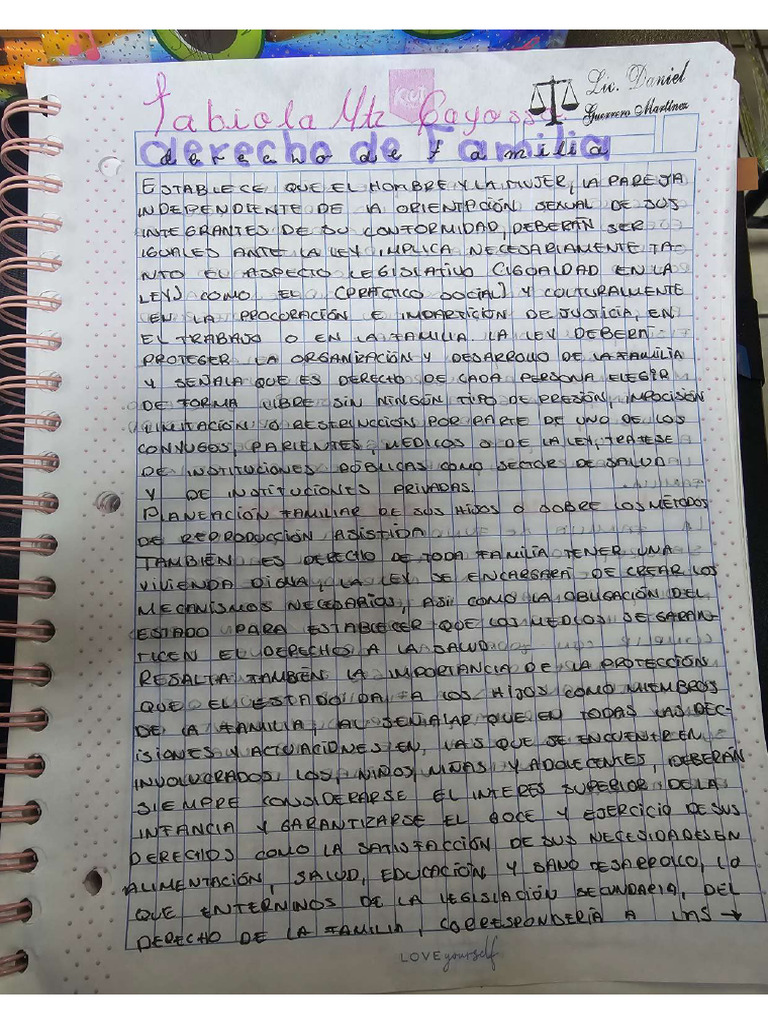 Fabiola Mtz Cayossa
KIUT
Lic. Daniel
Guerrero Martínez
derecho de Familia
ESTABLECE QUE EL HOMBRE Y LA MUJER, LA PAREJA
INDEPENDIENTE DE LA ORIENTACIÓN SEXUAL DE SUS
INTEGRANTES DE SU CONFORMIDAD, DEBERÁN SER
IGUALES ANTE LA LEY IMPLICA NECESARIAMENTE TA-
NTO EL ASPECTO LEGISLATIVO (IGUALDAD EN LA
LEY) COMO EL (PRÁCTICO SOCIAL) Y CULTURALMENTE
EN LA PROCURACIÓN E IMPARTICIÓN DE JUSTICIA, EN
EL TRABAJO O EN LA FAMILIA. LA LEY DEBERÁ
PROTEGER LA ORGANIZACIÓN Y DESARROLLO DE LA FAMILIA
Y SEÑALA QUE ES DERECHO DE CADA PERSONA ELEGIR
DE FORMA LIBRE SIN NINGÚN TIPO DE PRESIÓN, IMPOCISIÓN
LIMITACIÓN O RESTRICCIÓN POR PARTE DE UNO DE LOS
CONYUGES, PARIENTES, MEDICOS O DE LA LEY, TRATESE
DE INSTITUCIONES PÚBLICAS COMO SECTOR DE SALUD
Y DE INSTITUCIONES PRIVADAS.
PLANEACIÓN FAMILIAR DE SUS HIJOS O SOBRE LOS MÉTODOS
DE REPRODUCCIÓN ASISTIDA
TAMBIÉN ES DERECHO DE TODA FAMILIA TENER UNA
VIVIENDA DIGNA, LA LEY SE ENCARGARÁ DE CREAR LOS
MECANISMOS NECESARIOS, ASI COMO LA OBLIGACIÓN DEL
ESTADO PARA ESTABLECER QUE LOS MEDIOS SE GARAN-
TICEN EL DERECHOS A LA SALUD
RESALTA TAMBIÉN LA IMPORTANCIA DE LA PROTECCIÓN
QUE EL ESTADO DA A LOS HIJOS COMO MIEMBROS
DE LA FAMILIA, AL SEÑALAR QUE EN TODAS LAS DEC-
ISIONES Y ACTUACIONES EN LAS QUE SE ENCUENTREN
INVOLUCRADOS LOS NIÑOS, NIÑAS Y ADOLECENTES, DEBERÁN
SIEMPRE CONSIDERARSE EL INTERES SUPERIOR DE LA
INFANCIA Y GARANTIZARSE EL GOCE Y EJERCICIO DE SUS
DERECHOS COMO LA SATISFACCIÓN DE SUS NECESIDADES EN
ALIMENTACIÓN, SALUD, EDUCACIÓN Y SANO DESARROLLO, LO
QUE ENTERNINOS DE LA LEGISLACIÓN SECUNDARIA, DEL
DERECHO DE LA FAMILIA, CORRESPONDERÍA A LAS →
LOVE yourself